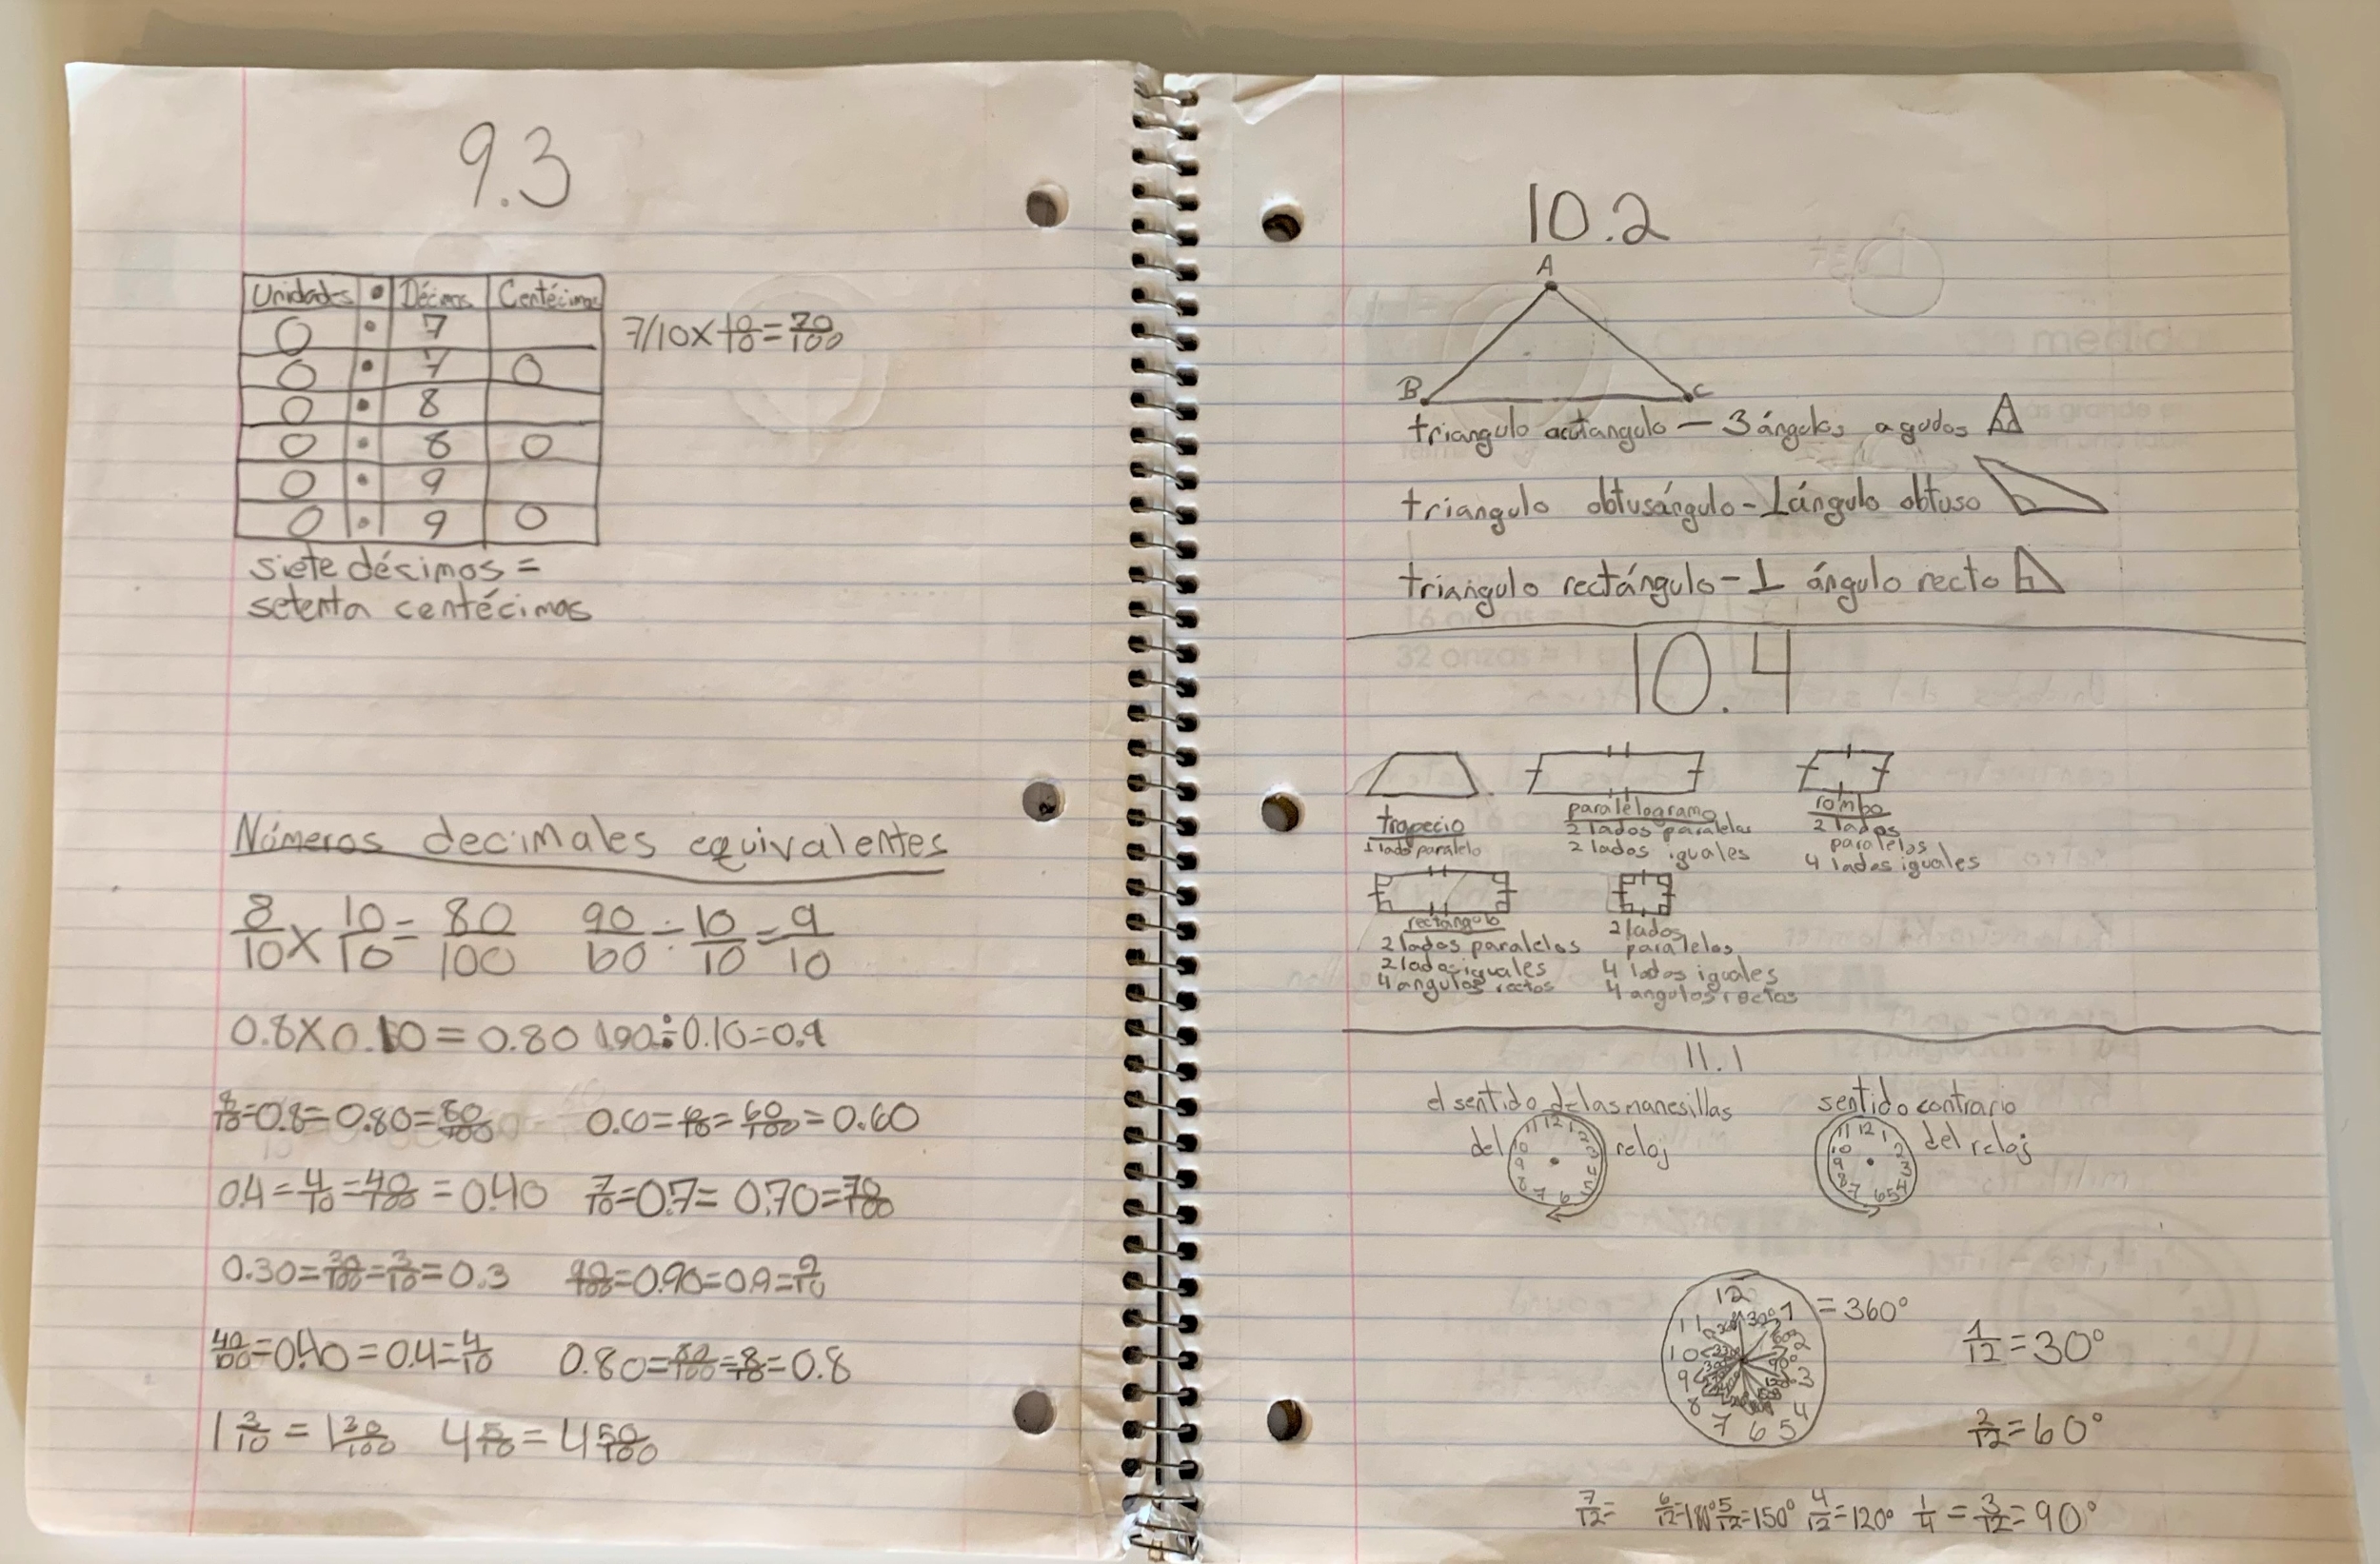 9.3
Unidades . Décimos Centécimos
0 . 7
0 . 7 0
0 . 8
0 . 8 0
0 . 9
0 . 9 0
7/10 x 10/10 = 70/100
siete décimos =
setenta centécimos
Números decimales equivalentes
8/10 x 10/10 = 80/100 90/100 ÷ 10/10 = 9/10
0.8 x 0.10 = 0.80 0.90 ÷ 0.10 = 0.9
8/10 = 0.8 = 0.80 = 80/100 0.6 = 6/10 = 60/100 = 0.60
0.4 = 4/10 = 40/100 = 0.40 7/10 = 0.7 = 0.70 = 70/100
0.30 = 30/100 = 3/10 = 0.3 90/100 = 0.90 = 0.9 = 9/10
40/100 = 0.40 = 0.4 = 4/10 0.80 = 80/100 = 8/10 = 0.8
1 3/10 = 1 30/100 4 5/10 = 4 50/100
10.2
A
B C
triangulo acutangulo — 3 ángulos agudos
triangulo obtusángulo - 1 ángulo obtuso
triangulo rectángulo - 1 ángulo recto
10.4
trapecio
1 lado paralelo
paralelogramo
2 lados paralelos
2 lados iguales
rombo
2 lados
paralelos
4 lados iguales
rectángulo
2 lados paralelos
2 lados iguales
4 angulos rectos
2 lados
paralelos
4 lados iguales
4 angulos rectos
11.1
el sentido de las manesillas
del reloj
11 12 1 2 3 4 5 6 7 8 9 10
sentido contrario
del reloj
11 12 1 2 3 4 5 6 7 8 9 10
12 1 2 3 4 5 6 7 8 9 10 11
= 360°
1/12 = 30°
2/12 = 60°
7/12 = 6/12 = 180° 5/12 = 150° 4/12 = 120° 1/4 = 3/12 = 90°